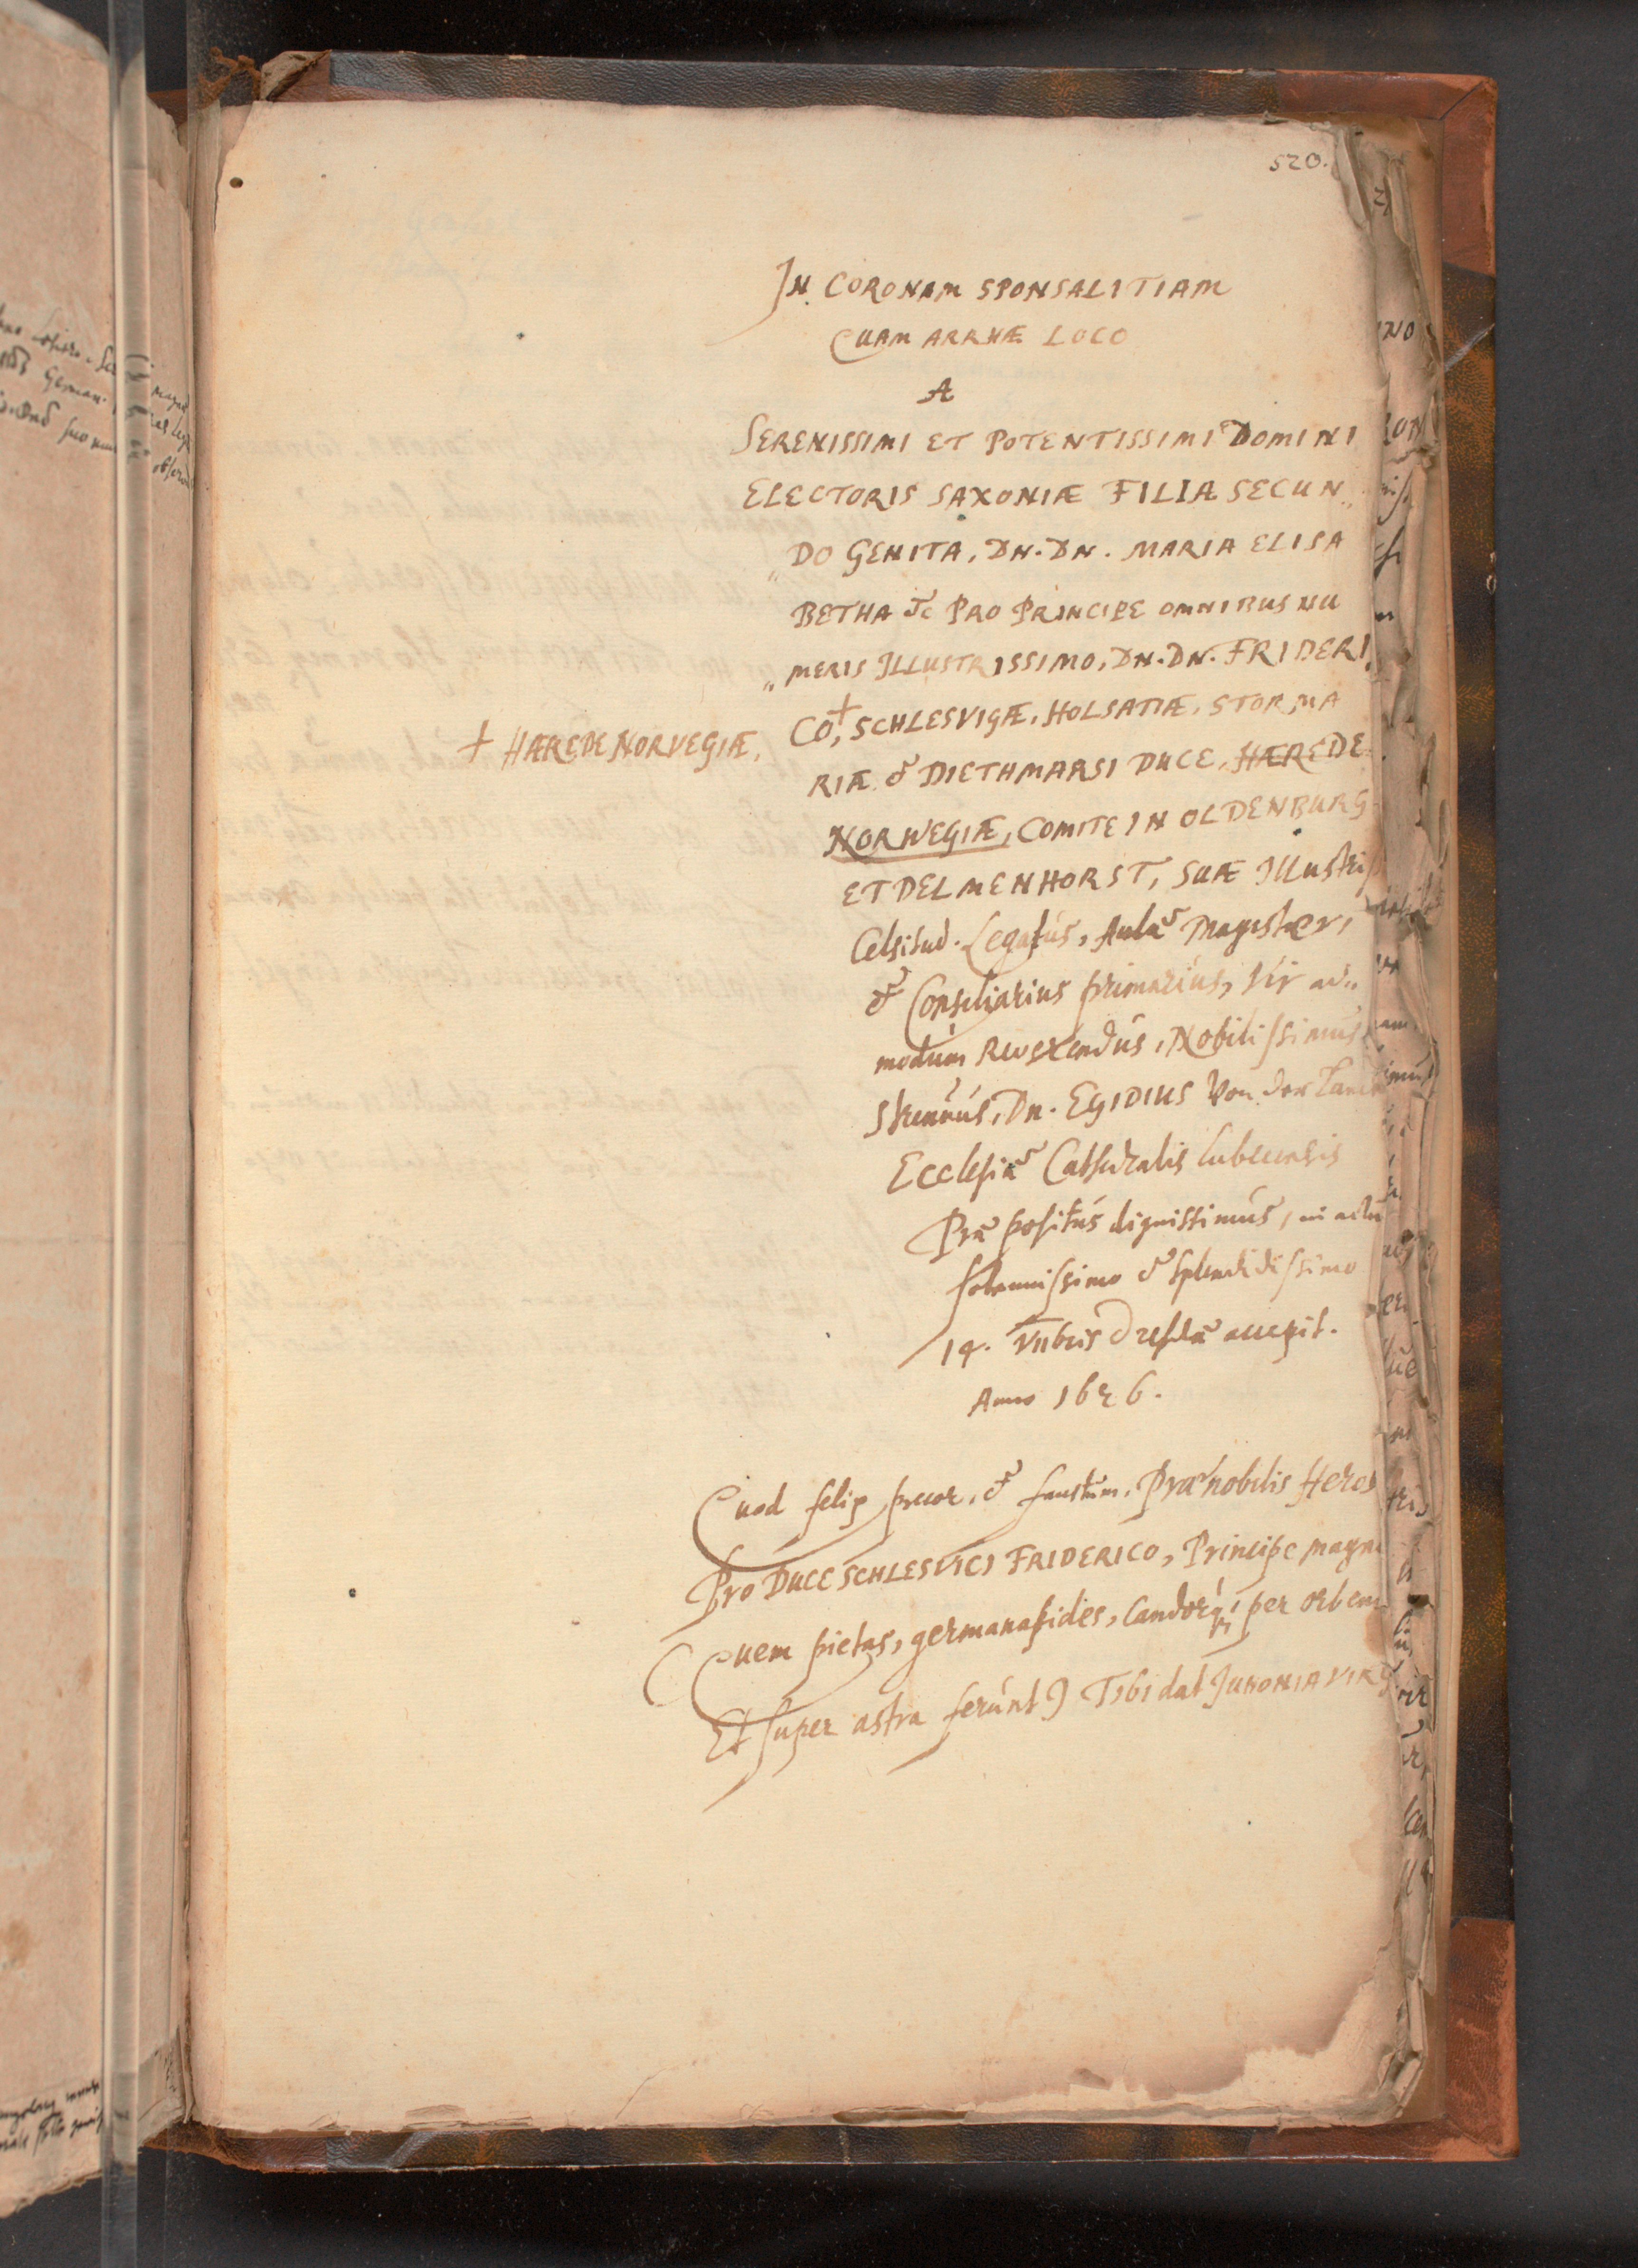 520.
IN CORONAM SPONSALITIAM
QUAM ARRHÆ LOCO
A
SERENISSIMI ET POTENTISSIMI DOMINI
ELECTORIS SAXONIÆ FILIA SECUN„
„DO GENITA, DN. DN. MARIA ELISA
BETHA &c PRO PRINCIPE OMNIBUS NU
„MERIS ILLUSTRISSIMO, DN. DN. FRIDERI„
CO,+ SCHLESVIGÆ, HOLSATIÆ, STORMA
+ HÆREDE NORVEGIÆ,
RIÆ & DIETHMARSI DUCE, HÆREDE
NORWEGIÆ, COMITE IN OLDENBURG
ET DELMENHORST, SUÆ Illustriss
Celsitud. Legatus, Aulæ Magister,
& Consiliarius primarius, Vir ad„
modum Reverendus, Nobilissimus
Strenuus, Dn. EGIDIUS Von der
Ecclesiæ Cathedralis Lubecensis
Præpositus dignissimus, in actu
solennissimo & splendidissimo
14. VIIbris Dresdæ accepit.
Anno 1626.
Quod felix precor, & faustum, Prænobilis Heros
Pro DUCE SCHLESVICI FRIDERICO, Principe magno
(Quem pietas, germana fides, Candorq; per orbem
Et super astra ferunt) Tibi dat JUNONIA